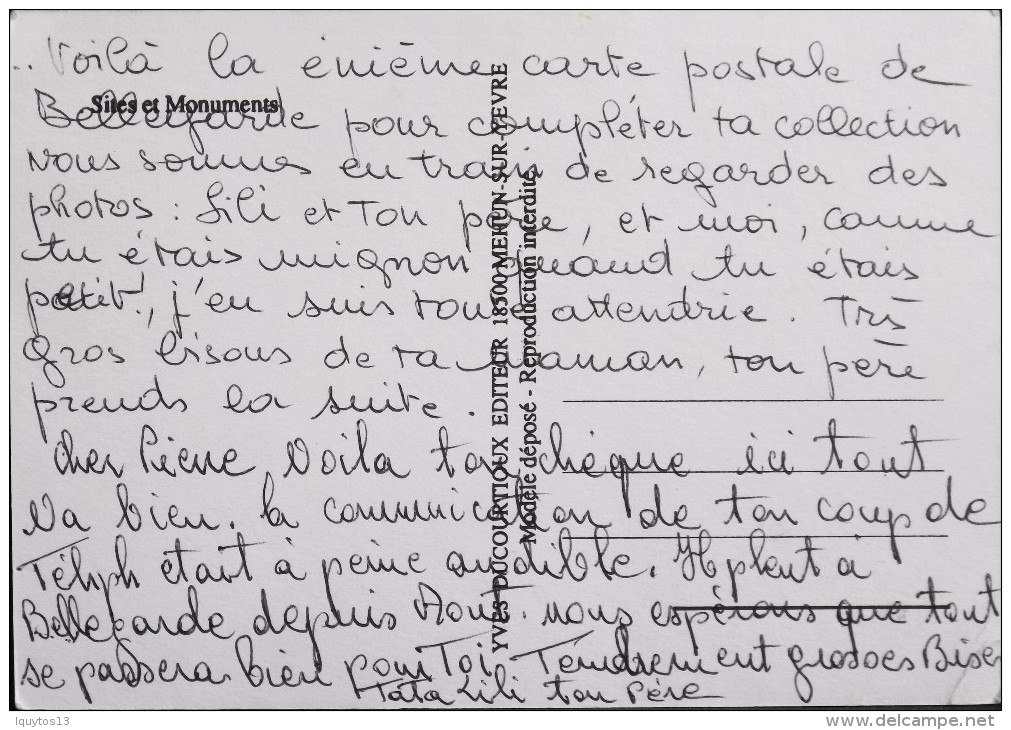 .. Voilà la énième carte postale de
Sites et Monuments
Bellegarde pour compléter ta collection
nous sommes en train de regarder des
photos : Lili et ton père, et moi, comme
tu étais mignon quand tu étais
petit !, j'en suis toute attendrie. Très
gros bisous de ta maman, ton père
prends la suite.
Cher Pierre, Voila ton chèque ici tout
Va bien. la communication de ton coup de
Téléph était à peine audible. Il pleut à
Bellegarde depuis Aout. nous espérons que tout
se passera bien pour Toi. Tendrement grosses Bises
Tata Lili ton Père
YVES DUCOURTIOUX EDITEUR 18500 MEHUN-SUR-YEVRE
Modèle déposé - Reproduction interdite
lquytos13
www.delcampe.net